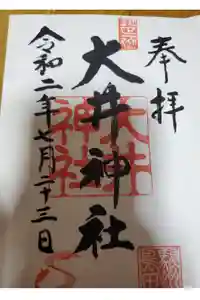 奉拝
大井神社
大井
神社
令和二年七月二十三日